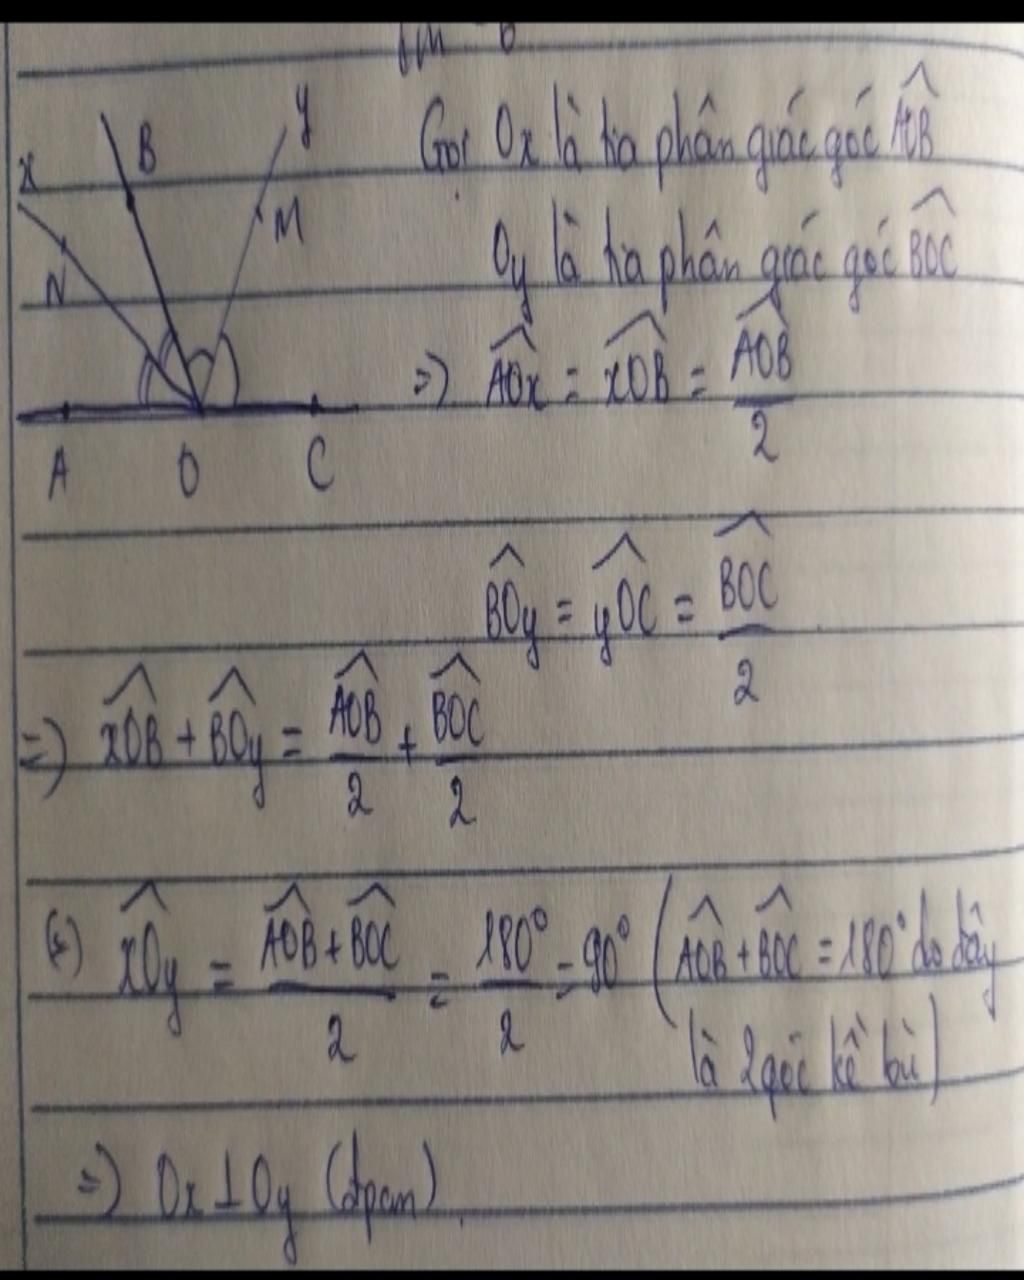 x
B
y
N
M
A O C
Gọi Ox là tia phân giác góc \widehat{AOB}
Oy là tia phân giác góc \widehat{BOC}
=) \widehat{AOx} = \widehat{xOB} = \frac{\widehat{AOB}}{2}
\widehat{BOy} = \widehat{yOC} = \frac{\widehat{BOC}}{2}
=) \widehat{xOB} + \widehat{BOy} = \frac{\widehat{AOB}}{2} + \frac{\widehat{BOC}}{2}
\widehat{xOy} = \frac{\widehat{AOB} + \widehat{BOC}}{2} = \frac{180°}{2} = 90° (\widehat{AOB} + \widehat{BOC} = 180° do đây
là 2 góc kề bù)
=) Ox ⊥ Oy (đpcm)